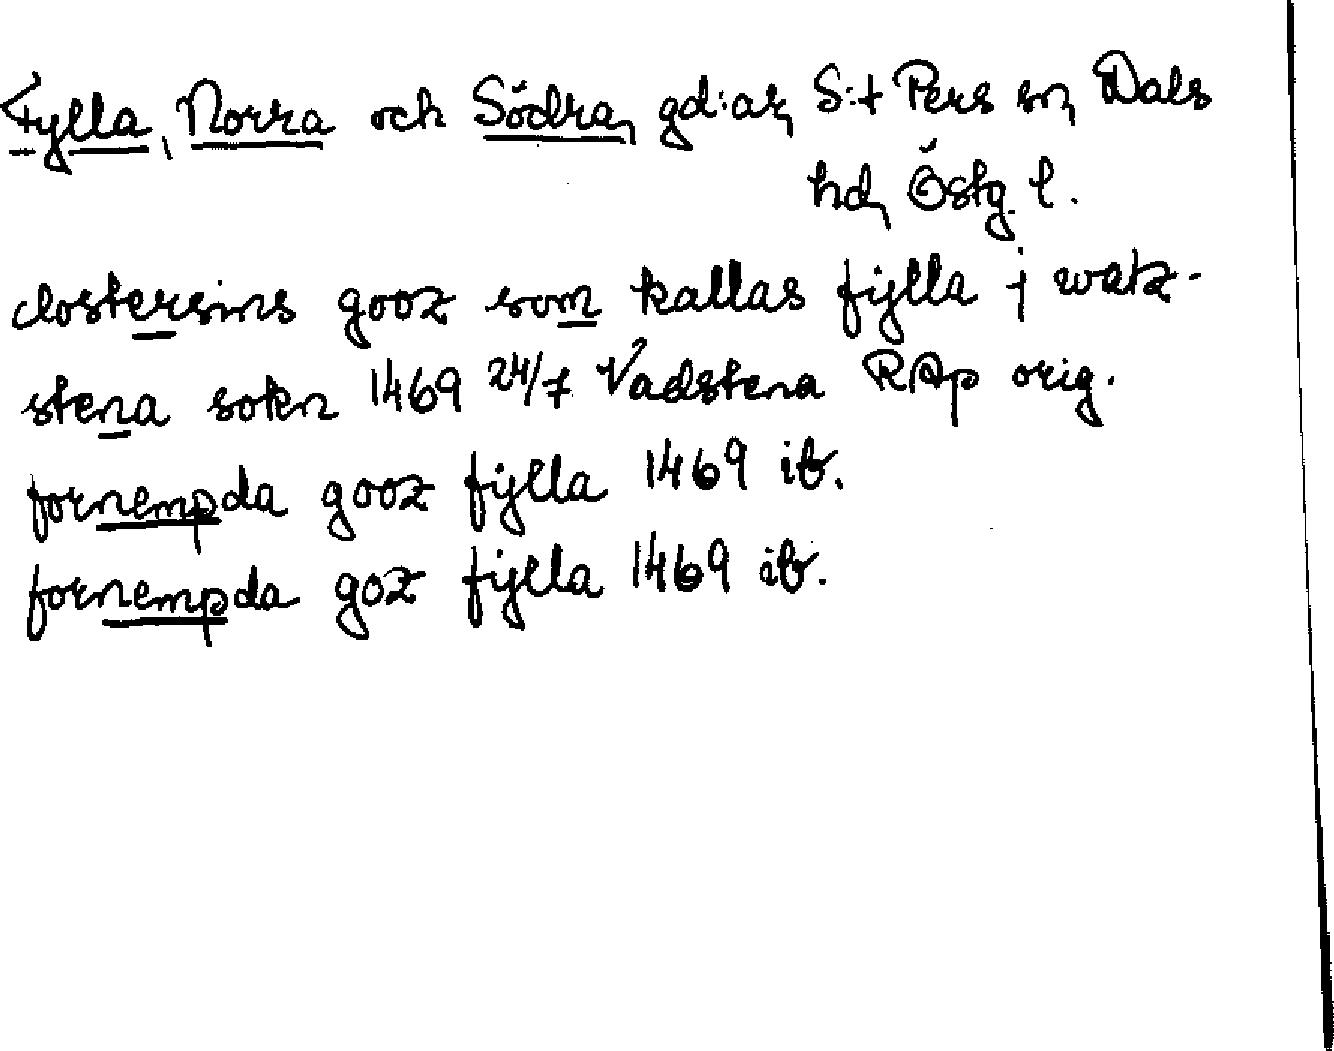 Fylla, Norra och Södra, gd:ar, S:t Pers sn, Dals
hd, Östg. l.
clostersins gooz som kallas fijlla j watz-
stena sokn 1469 24/7 Vadstena RAp orig.
fornempda gooz fijlla 1469 ib.
fornempda goz fijlla 1469 ib.